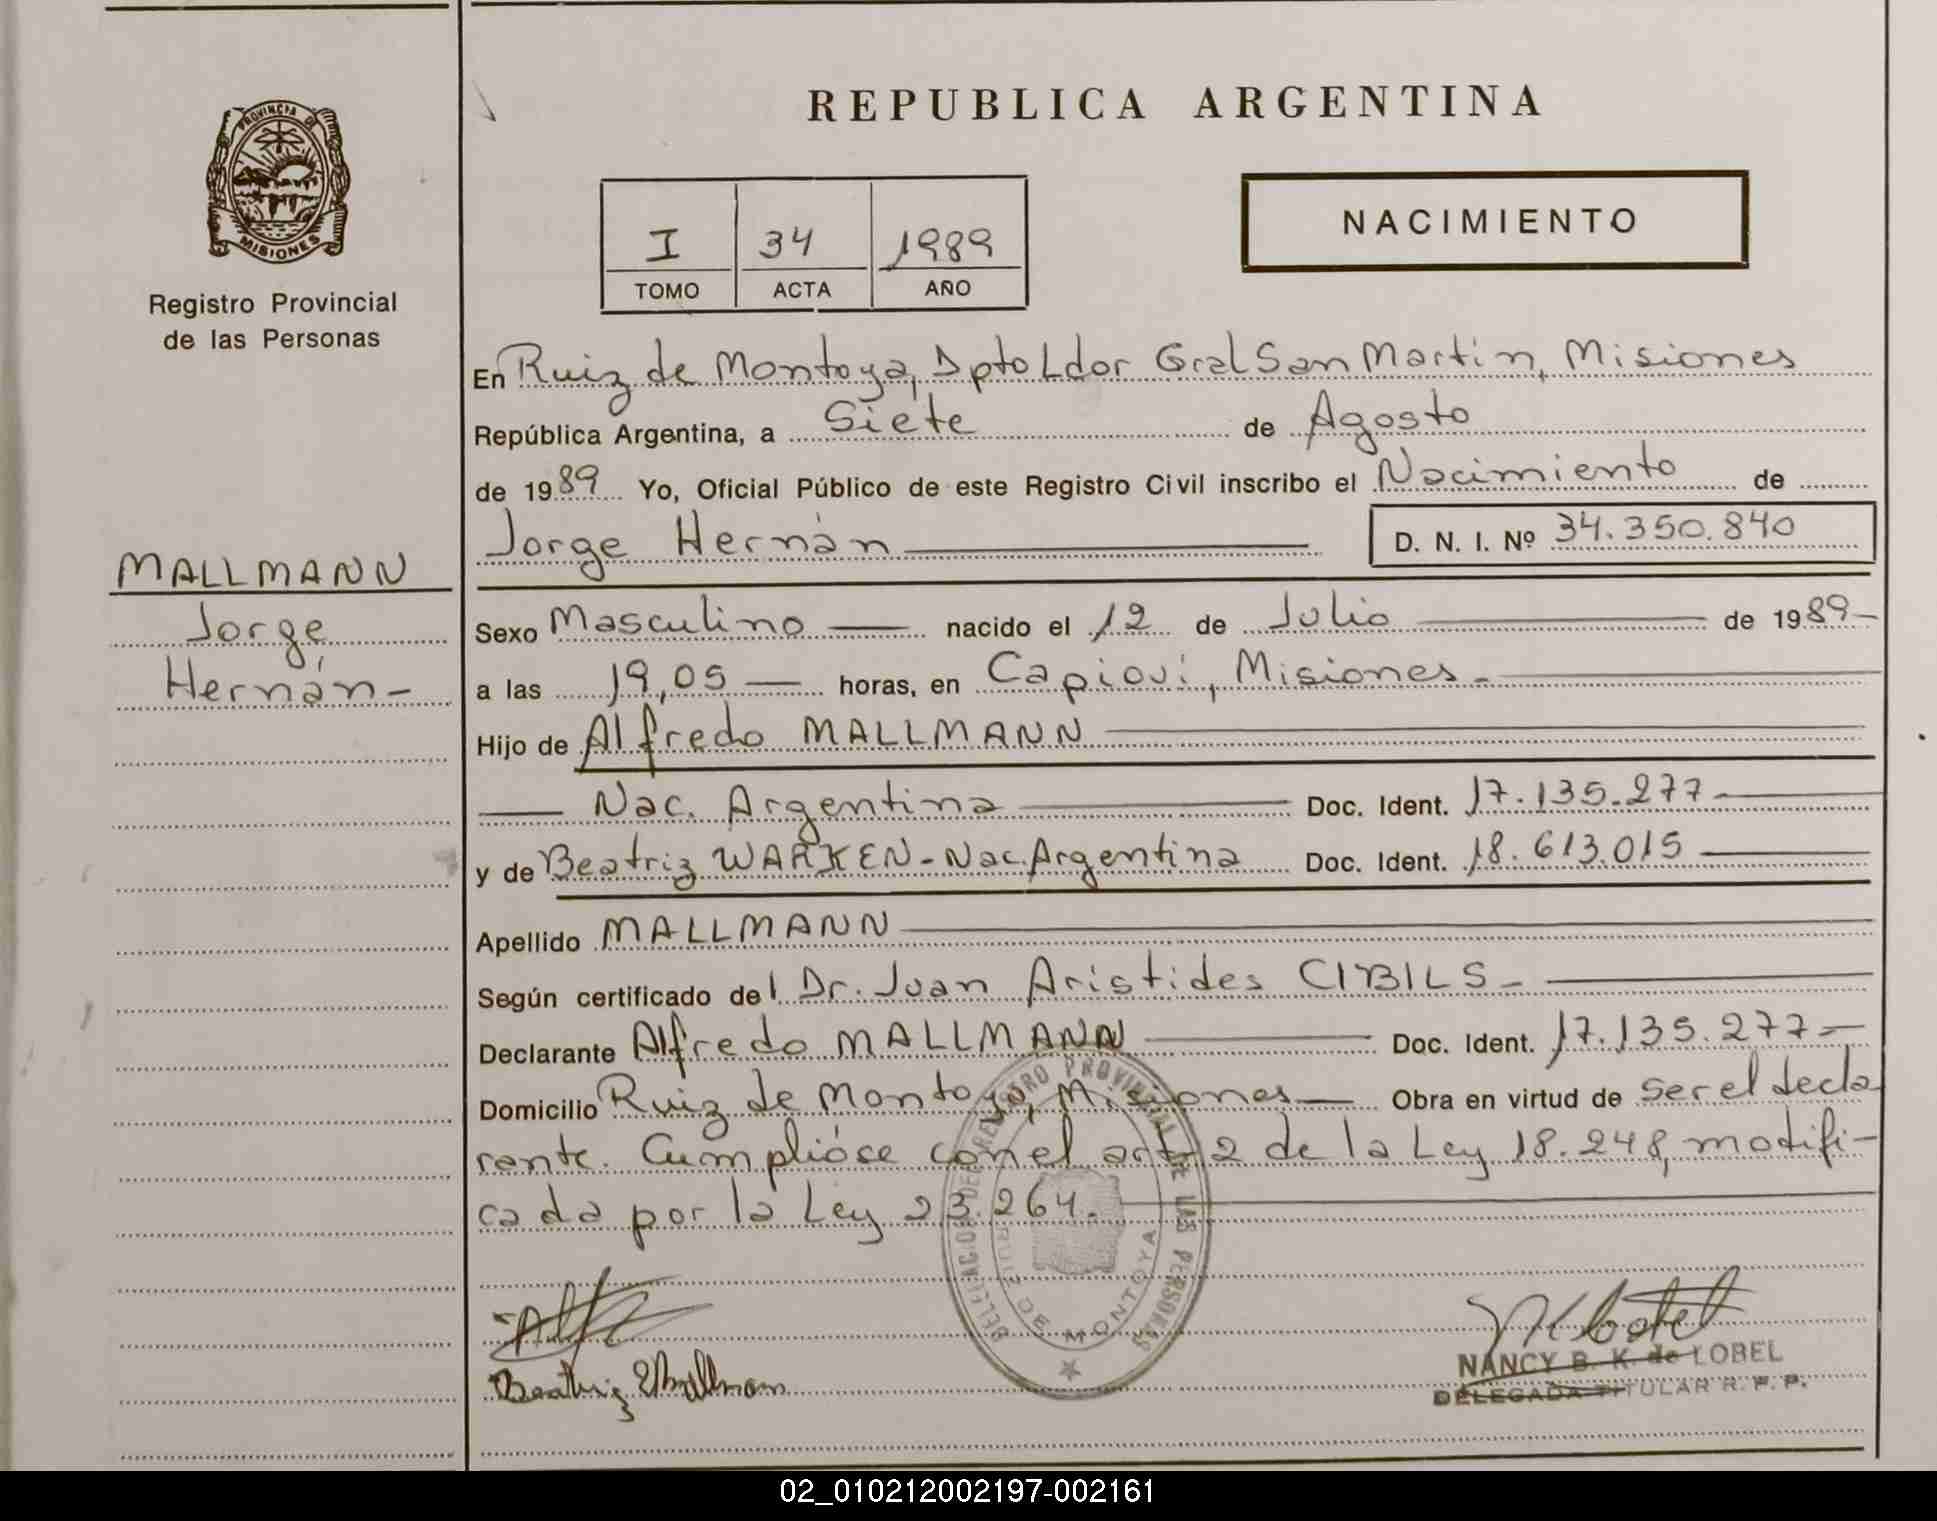 REPUBLICA ARGENTINA
PROVINCIA DE
MISIONES
Registro Provincial
de las Personas
I 34 1989
TOMO ACTA AÑO
NACIMIENTO
MALLMANN
Jorge
Hernán-
En Ruiz de Montoya, Dpto Ldor Gral San Martin, Misiones
República Argentina, a Siete de Agosto
de 1989 Yo, Oficial Público de este Registro Civil inscribo el Nacimiento de
Jorge Hernán D. N. I. Nº 34.350.840
Sexo Masculino — nacido el 12 de Julio — de 1989-
a las 19,05 — horas, en Capioví, Misiones.-
Hijo de Alfredo MALLMANN
— Nac. Argentina — Doc. Ident. 17.135.277-
y de Beatriz WARKEN-Nac. Argentina Doc. Ident. 18.613.015 —
Apellido MALLMANN
Según certificado del Dr. Juan Aristides CIBILS-
Declarante Alfredo MALLMANN — Doc. Ident. 17.135.277-
Domicilio Ruiz de Montoya, Misiones — Obra en virtud de ser el decla
rante. Cumplióse con el art 2 de la Ley 18.248, modifi-
cada por la Ley 23.264.
DELEGACION DE REGISTRO PROVINCIAL DE LAS PERSONAS
RUIZ DE MONTOYA
Beatriz
NANCY B. K. de LOBEL
DELEGADA TITULAR R. P. P.
02_010212002197-002161